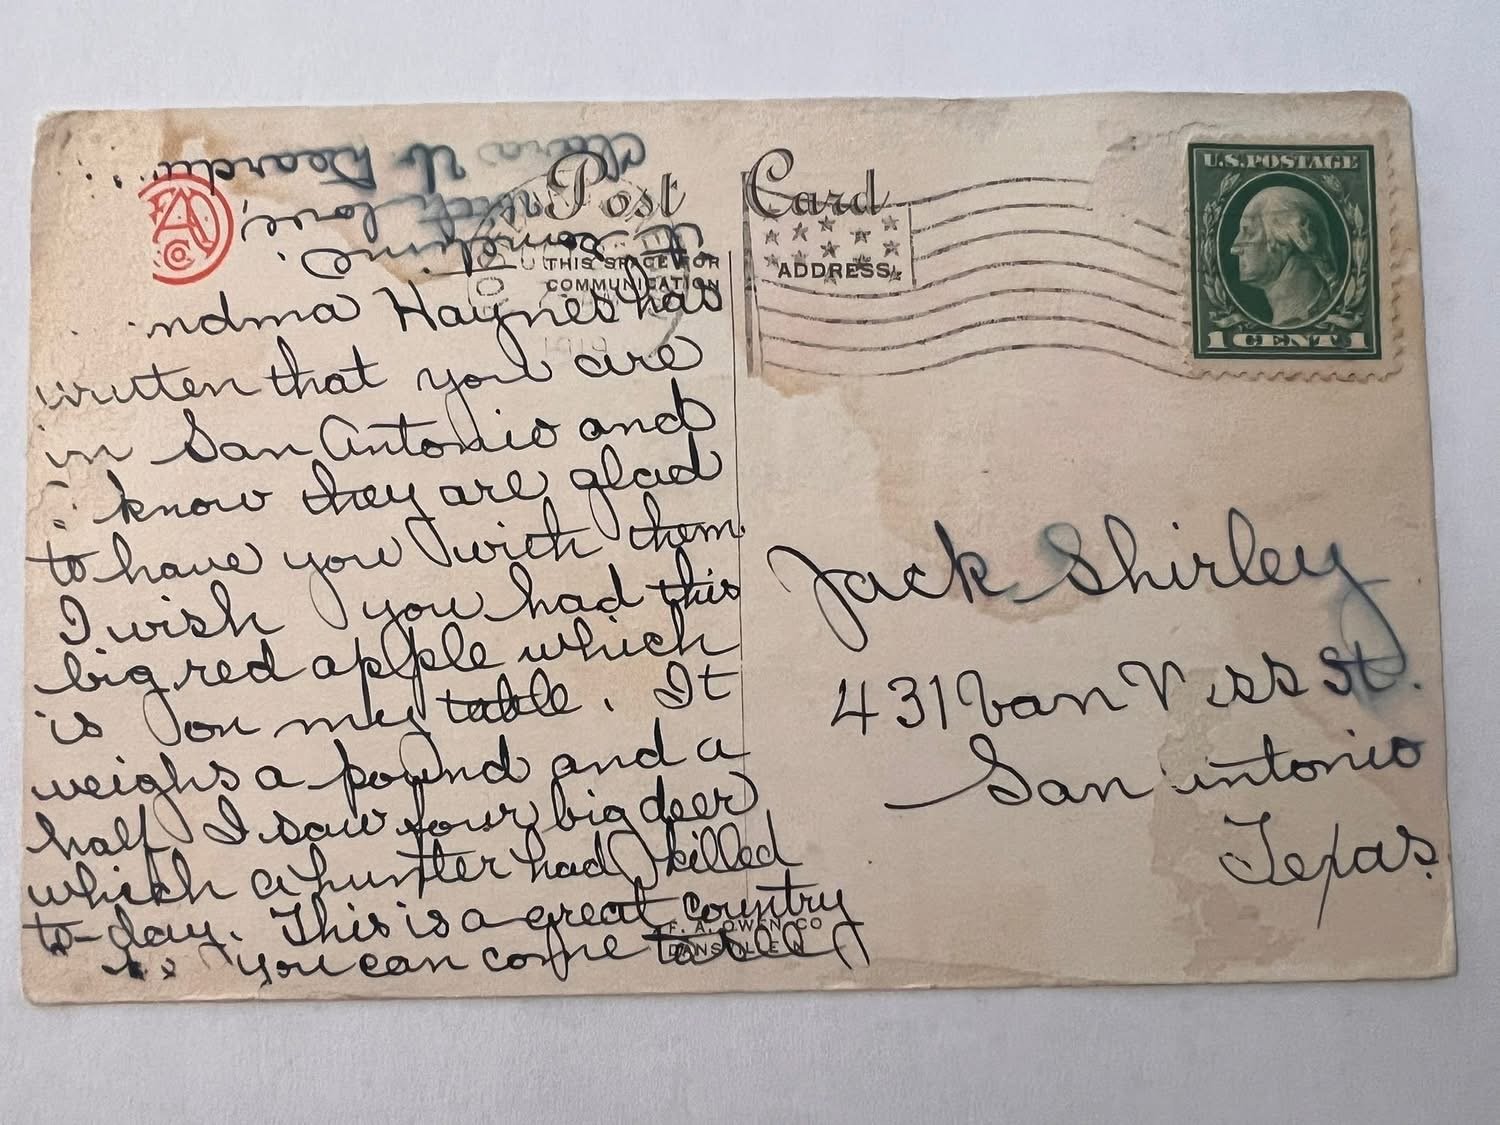 Post Card
THIS SPACE FOR
COMMUNICATION
ADDRESS
U.S. POSTAGE
1 CENT 1
A
Co
ndma Haynes has
written that you are
in San Antonio and
know they are glad
to have you with them
I wish you had this
big red apple which
is on my table. It
weighs a pound and a
half I saw four big deer
which a hunter had killed
to-day. This is a great country
you can come to see
it sometime
with love,
Clara W
Jack Shirley
431 Van Ness St.
San Antonio
Texas.
F. A. OWEN CO
DANSVILLE N